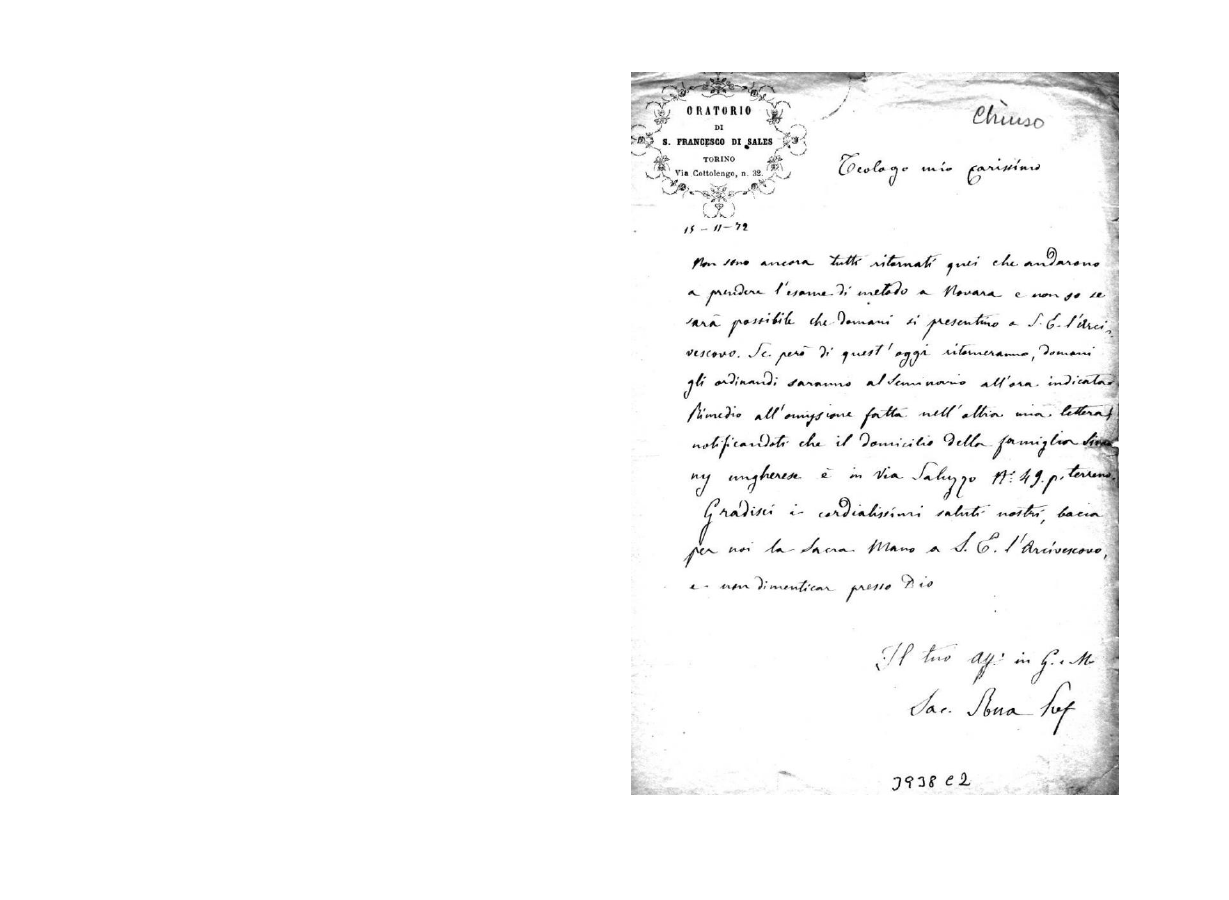 ORATORIO
DI
S. FRANCESCO DI SALES
TORINO
Via Cottolengo, n. 32.
Chiuso
Teologo mio carissimo
15 - 11 - 72
Non sono ancora tutti ritornati quei che andarono
a prendere l'esame di metodo a Novara e non so se
sarà possibile che domani si presentino a S. E. l'Arci-
vescovo. Se però di quest'oggi ritorneranno, domani
gli ordinandi saranno al Seminario all'ora indicata
Rimedio all'omissione fatta nell'altra mia lettera
notificandoti che il domicilio della famiglia
ny ungherese è in Via Saluzzo N.° 49. p. terreno.
Gradisci i cordialissimi saluti nostri, bacia
per noi la Sacra Mano a S. E. l'Arcivescovo,
e non dimenticar presso Dio
Il tuo Aff. in G. e M
Sac. Rua Pref
3938 C 2